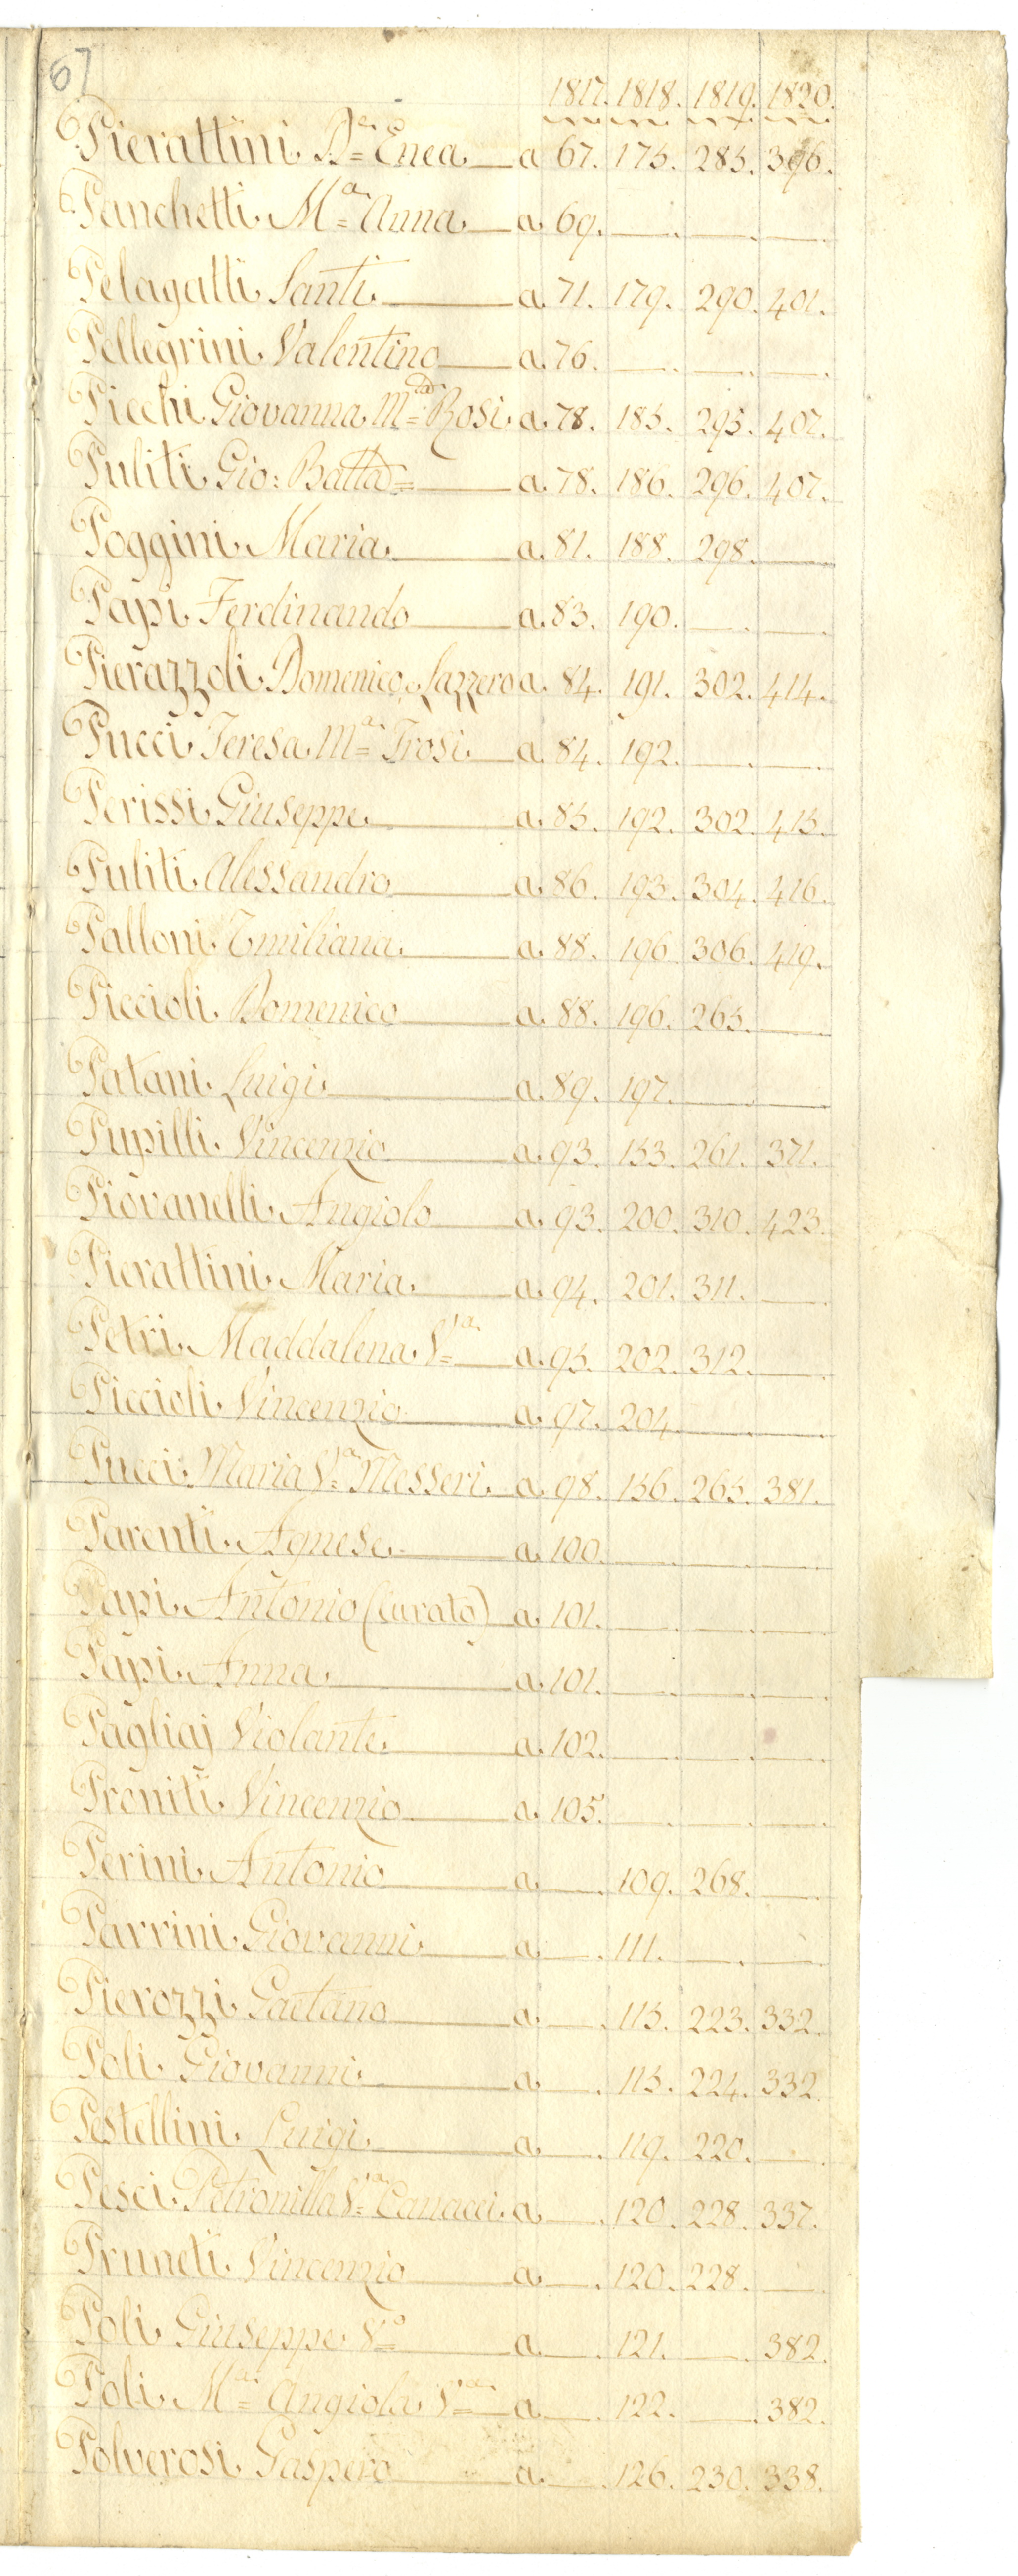 67
1817. 1818. 1819. 1820.
Pierattini Dn. Enea a 67. 175. 285. 396.
Panchetti Ma. Anna a 69.
Pelagatti Santi a 71. 179. 290. 401.
Pellegrini Valentino a 76.
Picchi Giovanna Rosi a 78. 185. 295. 407.
Puliti Gio: Batta a 78. 186. 296. 407.
Poggini Maria a 81. 188. 298.
Papi Ferdinando a 83. 190.
Pierazzoli Domenico, e Lazzero a 84. 191. 302. 414.
Pucci Teresa Ma. Frosi a 84. 192.
Perissi Giuseppe a 85. 192. 302. 415.
Puliti Alessandro a 86. 193. 304. 416.
Palloni Emiliana a 88. 196. 306. 419.
Piccioli Domenico a 88. 196. 265.
Patani Luigi a 89. 197.
Pupilli Vincenzio a 93. 153. 261. 371.
Piovanelli Angiolo a 93. 200. 310. 423.
Pierattini Maria a 94. 201. 311.
Petri Maddalena Va. a 95. 202. 312.
Piccioli Vincenzio a 97. 204.
Pucci Maria Va. Messeri a 98. 156. 265. 381.
Parenti Agnese a 100.
Papi Antonio (Curato) a 101.
Papi Anna a 101.
Pagliaj Violante a 102.
Proniti Vincenzio a 105.
Perini Antonio a 109. 268.
Parrini Giovanni a 111.
Pierozzi Gaetano a 115. 223. 332.
Poli Giovanni a 115. 224. 332.
Pestellini Luigi a 119. 220.
Pesci Petronilla Va. Canacci a 120. 228. 337.
Pruneti Vincenzio a 120. 228.
Poli Giuseppe Vo. a 121. 382.
Poli Ma. Angiola Va. a 122. 382.
Polverosi Gaspero a 126. 230. 338.